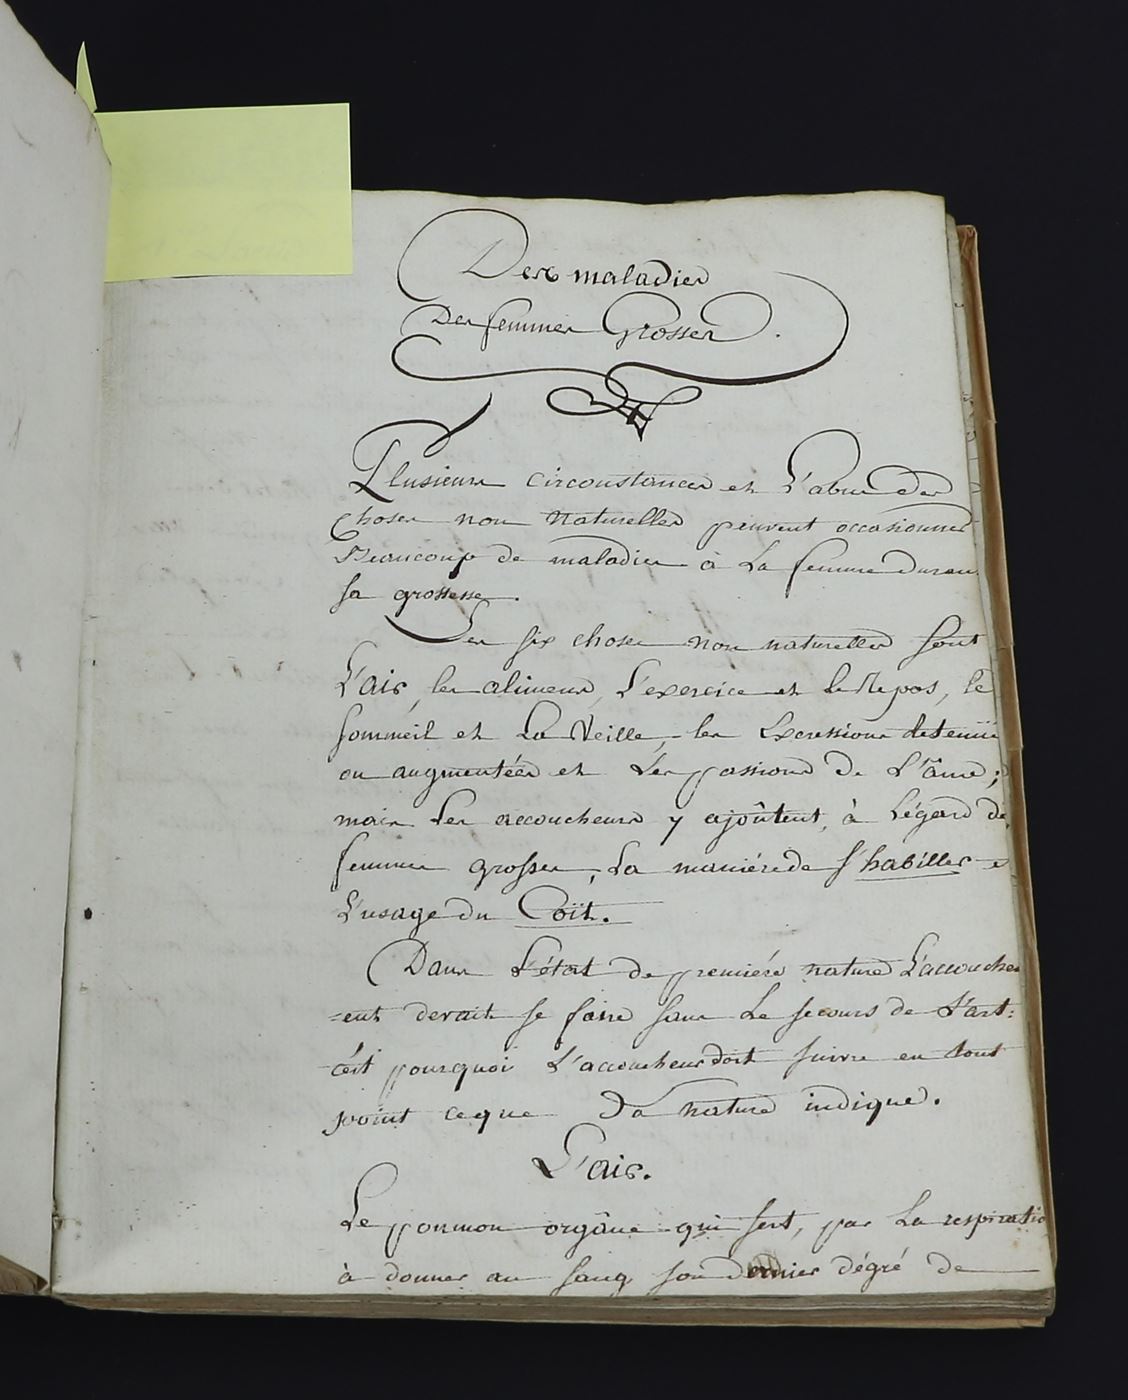 Des maladies
Des femmes Grosses.
Plusieurs circonstances et L'abus des
choses non naturelles peuvent occasionner
Beaucoup de maladies à La femme duran
sa grossesse.
Les six choses non naturelles sont
L'air, les alimens, L'exercice et le Repos, le
sommeil et La Veille, les Excressions detenüe
ou augmentées et Les passions de L'âme;
mais Les accoucheurs y ajoûtent, à Légard de
femmes grosses, La maniére de s'habiller e
L'usage du Coït.
Dans L'état de premiére nature L'accouchem
=ent devait se faire sans Le secours de L'art:
c'ést pourquoi L'accoucheur doit suivre en tout
point ce que La nature indique.
L'air.
Le poumon orgâne qui sert, par La respiratio
à donner au sang son dernier dégré de